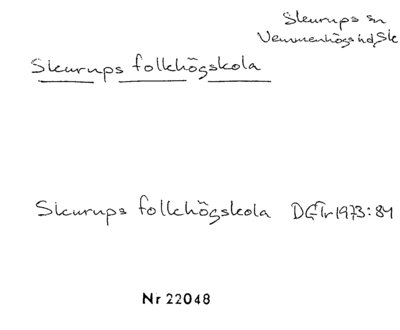 Skurups sn
Vemmenhögs hd, Sk
Skurups folkhögskola
Skurups folkhögskola DGTr 1973:84
Nr 22048